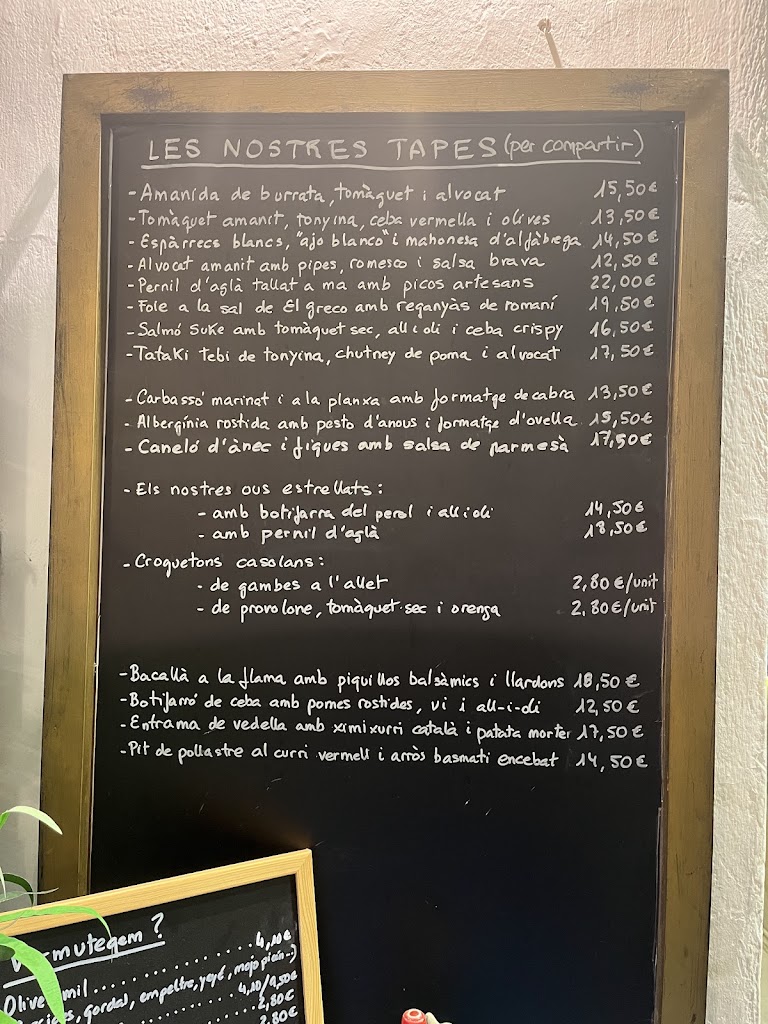 LES NOSTRES TAPES (per compartir)
- Amanida de burrata, tomàquet i alvocat 15,50€
- Tomàquet amanit, tonyina, ceba vermella i olives 13,50€
- Espàrrecs blancs, "ajo blanco" i mahonesa d'alfàbrega 14,50€
- Alvocat amanit amb pipes, romesco i salsa brava 12,50€
- Pernil d'aglà tallat a ma amb picos artesans 22,00€
- Foie a la sal de El greco amb reganyàs de romaní 19,50€
- Salmó suke amb tomàquet sec, allioli i ceba crispy 16,50€
- Tataki tebi de tonyina, chutney de poma i alvocat 17,50€
- Carbassó marinat i a la planxa amb formatge de cabra 13,50€
- Albergínia rostida amb pesto d'anous i formatge d'ovella 15,50€
- Caneló d'ànec i figues amb salsa de parmesà 17,50€
- Els nostres ous estrellats:
- amb botifarra del perol i allioli 14,50€
- amb pernil d'aglà 18,50€
- Croquetons casolans:
- de gambes a l'allet 2,80€/unit
- de provolone, tomàquet sec i orenga 2,80€/unit
- Bacallà a la flama amb piquillos balsàmics i llardons 18,50€
- Botifarró de ceba amb pomes rostides, vi i all-i-oli 12,50€
- Entrama de vedella amb ximixurri català i patata morter 17,50€
- Pit de pollastre al curri vermell i arròs basmati encebat 14,50€
mutegem?
4,10€
gordal, empeltre, yeyé, mojo picón..)
4,10/4,50€
2,80€
2,80€